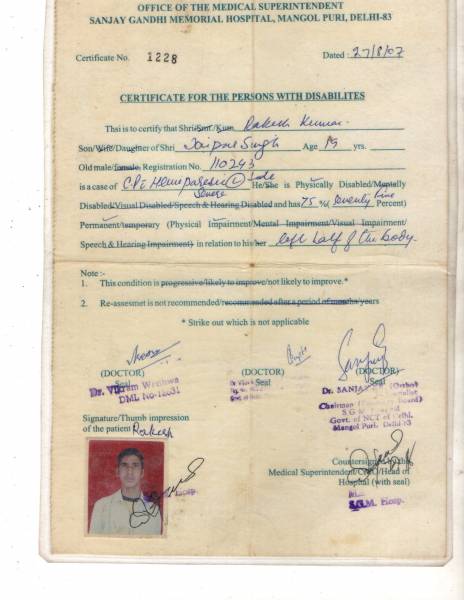 OFFICE OF THE MEDICAL SUPERINTENDENT
SANJAY GANDHI MEMORIAL HOSPITAL, MANGOL PURI, DELHI-83
Certificate No. 1228 Dated : 27/8/07
CERTIFICATE FOR THE PERSONS WITH DISABILITES
Thsi is to certify that Shri/Smt./Kum. Rakesh Kumar
Son/Wife/Daughter of Shri Singh Age 19 yrs.
Old male/female, Registration No. 110243
is a case of He/She is Physically Disabled/Mentally
Severe
Disabled/Visual Disabled/Speech & Hearing Disabled and has 75 %( Seventy Five Percent)
Permanent/temporary (Physical Impairment/Mental Impairment/Visual Impairment/
Speech & Hearing Impairment) in relation to his/her left half of the body.
Note :-
1. This condition is progressive/likely to improve/not likely to improve.*
2. Re-assesmet is not recommended/recommended after a period of months/years
* Strike out which is not applicable
(DOCTOR) (DOCTOR) (DOCTOR)
Seal Seal Seal
Dr. Vikram
DML No-
Dr. SANJAY (Ortho)
Chairman Board)
Govt. of NCT of Delhi.
Mangol Puri, Delhi-83
Signature/Thumb impression
of the patient Rakesh
Countersigned by the
Medical Superintendent/CMO/Head of
Hospital (with seal)
Hosp.
S.G.M. Hosp.